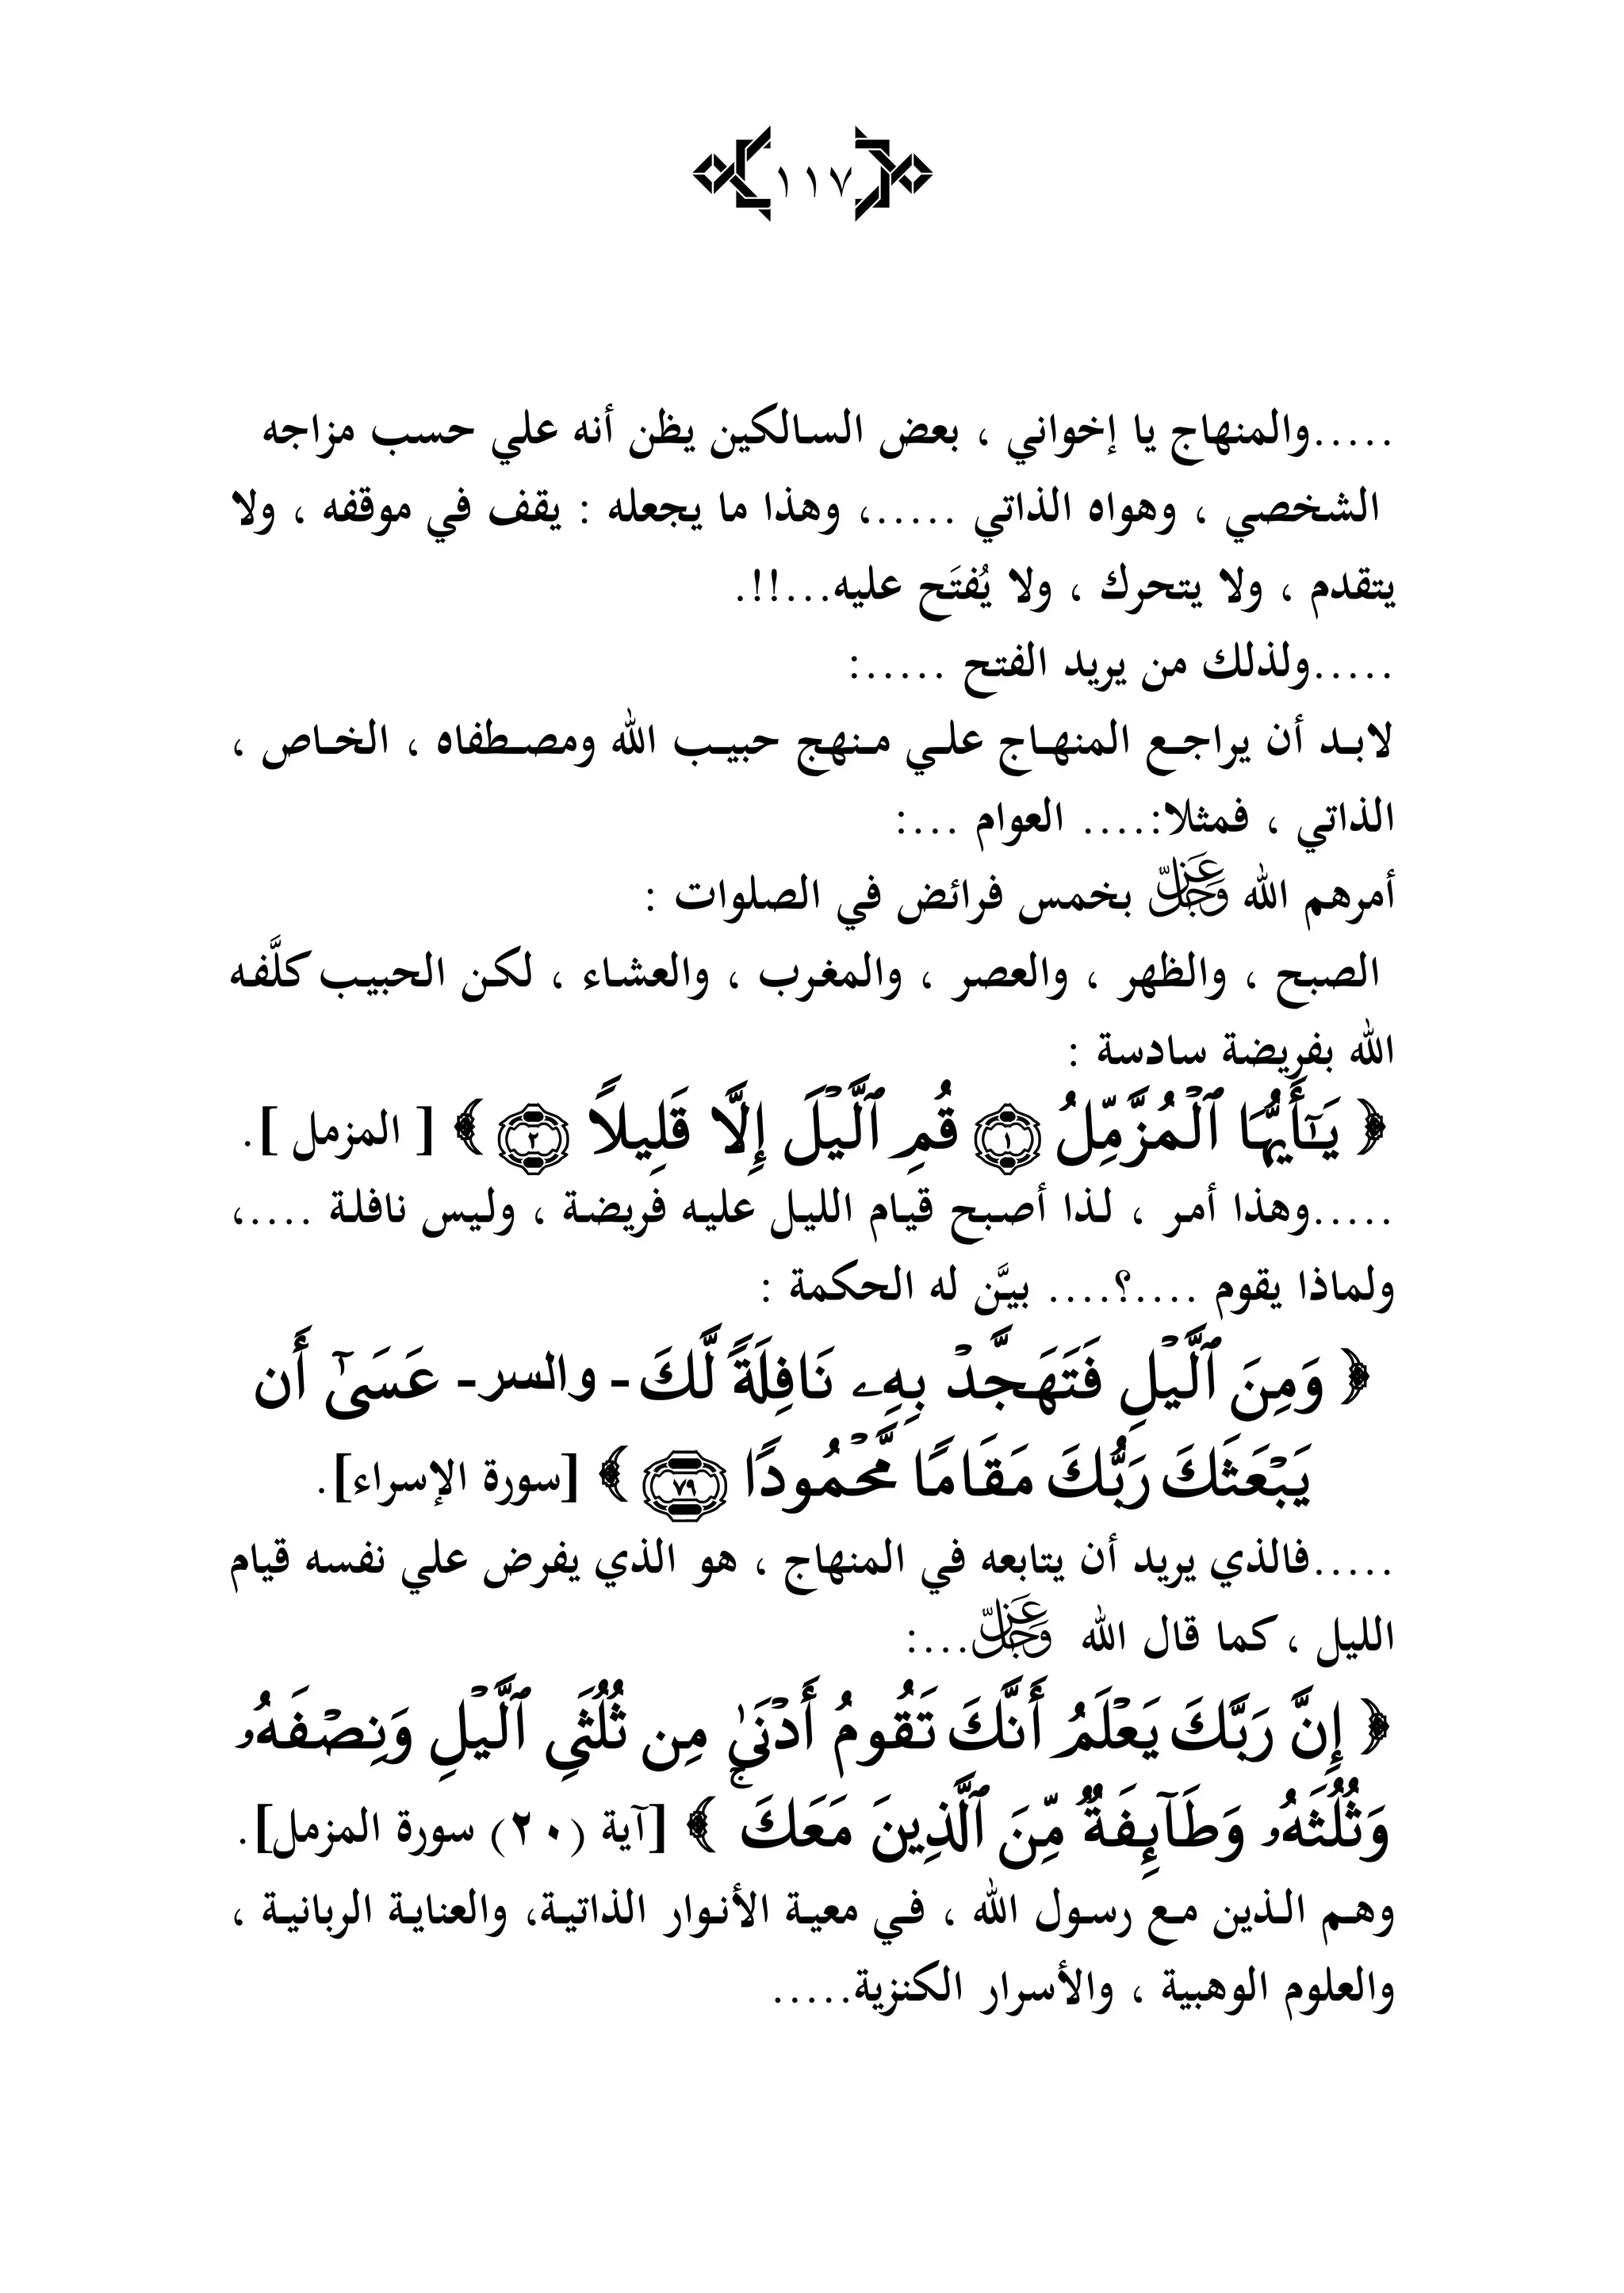 ١١٧
.....والمنهاج يا إخواني ، بعض السالكين يظن أنه علي حسب مزاجه
الشخصي ، وهواه الذاتي .....، وهذا ما يجعله : يقف في موقفه ، ولا
يتقدم ، ولا يتحرك ، ولا يُفتَح عليه...!!.
.....ولذلك من يريد الفتح .....:
لابد أن يراجع المنهاج علي منهج حبيب الله ومصطفاه ، الخاص ،
الذاتي ، فمثلا:.... العوام ...:
أمرهم الله عَزَّ وَجَلَّ بخمس فرائض في الصلوات :
الصبح ، والظهر ، والعصر ، والمغرب ، والعشاء ، لكن الحبيب كلَّفه
الله بفريضة سادسة :
﴿ يَـٰٓأَيُّهَا ٱلۡمُزَّمِّلُ ١ قُمِ ٱلَّيۡلَ إِلَّا قَلِيلًا ٢ ﴾ [ المزمل ].
.....وهذا أمر ، لذا أصبح قيام الليل عليه فريضة ، وليس نافلة ....،
ولماذا يقوم ....؟.... بيَّن له الحكمة :
﴿ وَمِنَ ٱلَّيۡلِ فَتَهَجَّدۡ بِهِۦ نَافِلَةً لَّكَ -والسر- عَسَىٰٓ أَن
يَبۡعَثَكَ رَبُّكَ مَقَامًا مَّحۡمُودًا ٧٩ ﴾ [سورة الإسراء].
.....فالذي يريد أن يتابعه في المنهاج ، هو الذي يفرض علي نفسه قيام
الليل ، كما قال الله عَزَّ وَجَلَّ...:
﴿ إِنَّ رَبَّكَ يَعۡلَمُ أَنَّكَ تَقُومُ أَدۡنَىٰ مِن ثُلُثَيِ ٱلَّيۡلِ وَنِصۡفَهُۥ
وَثُلُثَهُۥ وَطَآئِفَةٌ مِّنَ ٱلَّذِينَ مَعَكَۚ ﴾ [آية (٢٠) سورة المزمل].
وهم الذين مع رسول الله ، في معية الأنوار الذاتية، والعناية الربانية ،
والعلوم الوهبية ، والأسرار الكنزية.....